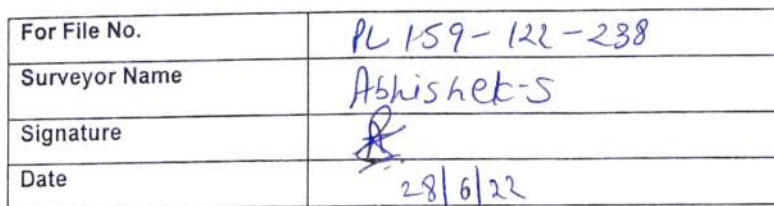 For File No. PL 159-122-238
Surveyor Name Abhishek-S
Signature
Date 28/6/22